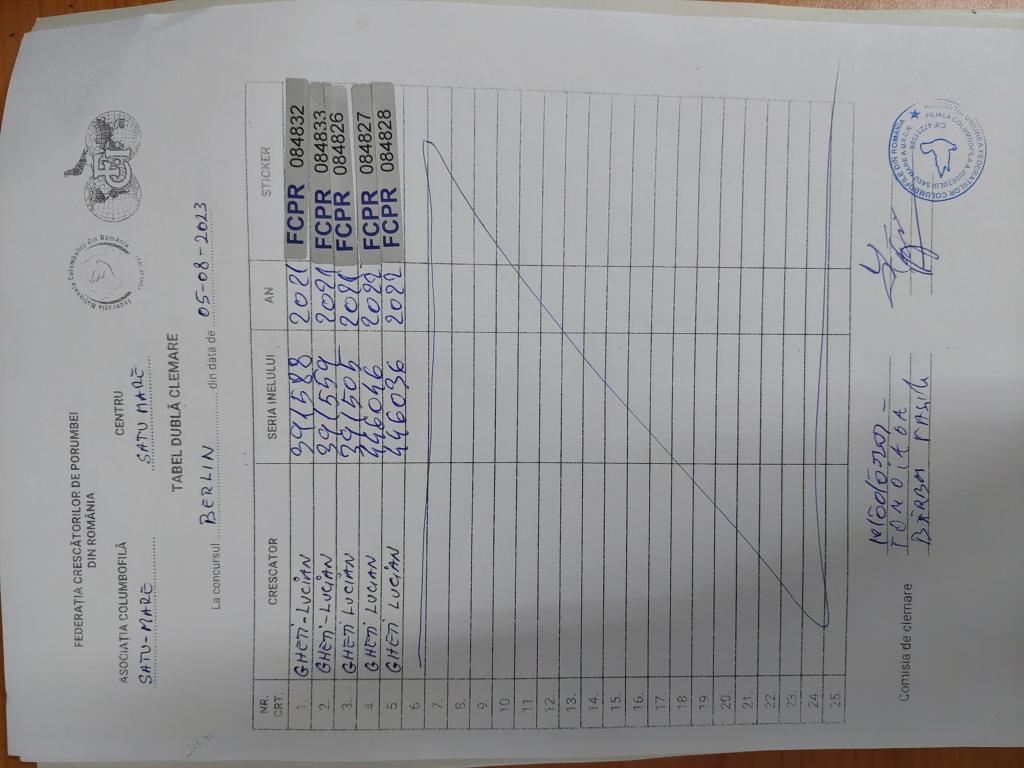 FEDERAȚIA CRESCĂTORILOR DE PORUMBEI
DIN ROMÂNIA
Federația Națională Columbofilă din România
ASOCIAȚIA COLUMBOFILĂ
SATU-MARE
CENTRU
SATU MARE
TABEL DUBLĂ CLEMARE
La concursul BERLIN din data de 05-08-2023
NR. CRT. CRESCATOR SERIA INELULUI AN STICKER
1. GHETI-LUCIAN 391588 2021 FCPR 084832
2. GHETI-LUCIAN 391559 2021 FCPR 084833
3. GHETI LUCIAN 391505 2021 FCPR 084826
4. GHETI LUCIAN 446046 2022 FCPR 084827
5 GHETI LUCIAN 446036 2022 FCPR 084828
6.
7.
8.
9.
10.
11
12.
13.
14.
15.
16.
17.
18.
19.
20.
21.
22.
23.
24.
25.
Comisia de clemare
UNIUNEA FEDERAȚIILOR COLUMBOFILE DIN ROMÂNIA
FILIALA COLUMBOFILĂ A JUDEȚULUI SATU MARE A U.F.C.R.